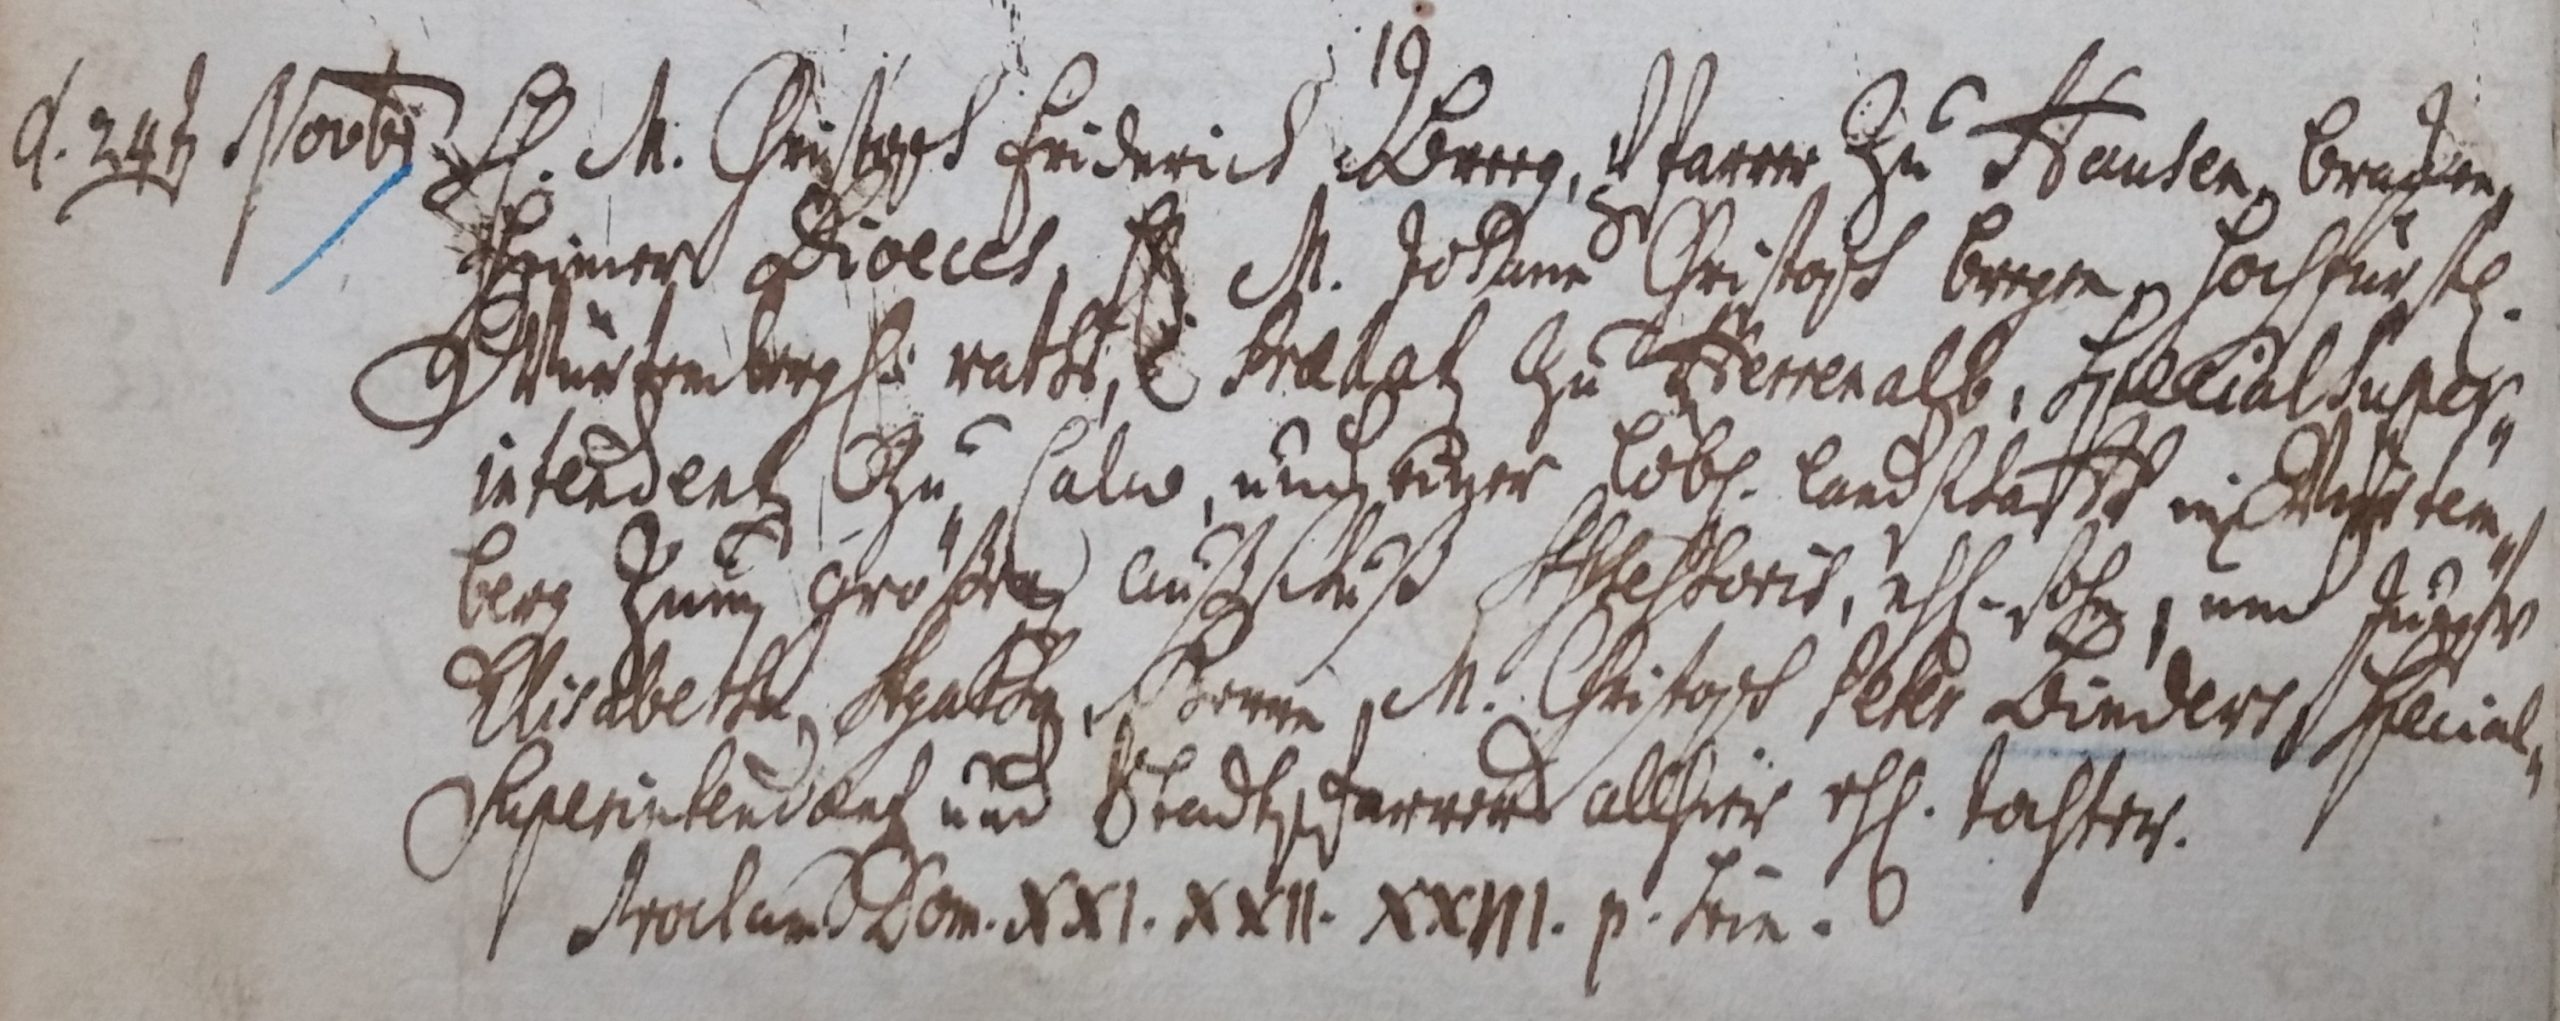 19
d. 24t Novbr H. M. Christoph Friderich Breeg, Pfarrer Zu Hausen, Bracken,,
heimer Dioeces, H. M. Johann Christoph Bregen, Hochfürstl.
Würtembergs. raths, Prælat Zu Herrenalb, Special Super,,
intendent Zu Calw, und einer Löbl. Landschafft in Würtem,,
berg Zum größern außschuß Assessoris, ehl. Sohn, und Jungfr
Elisabetha Agatha, Herrn M. Christoph Peter Binders, Special,,
Superintendent und Stadtpfarrers allhier ehl. tochter.
Proclam. Dom. XXI. XXII. XXIII. p. Trin.